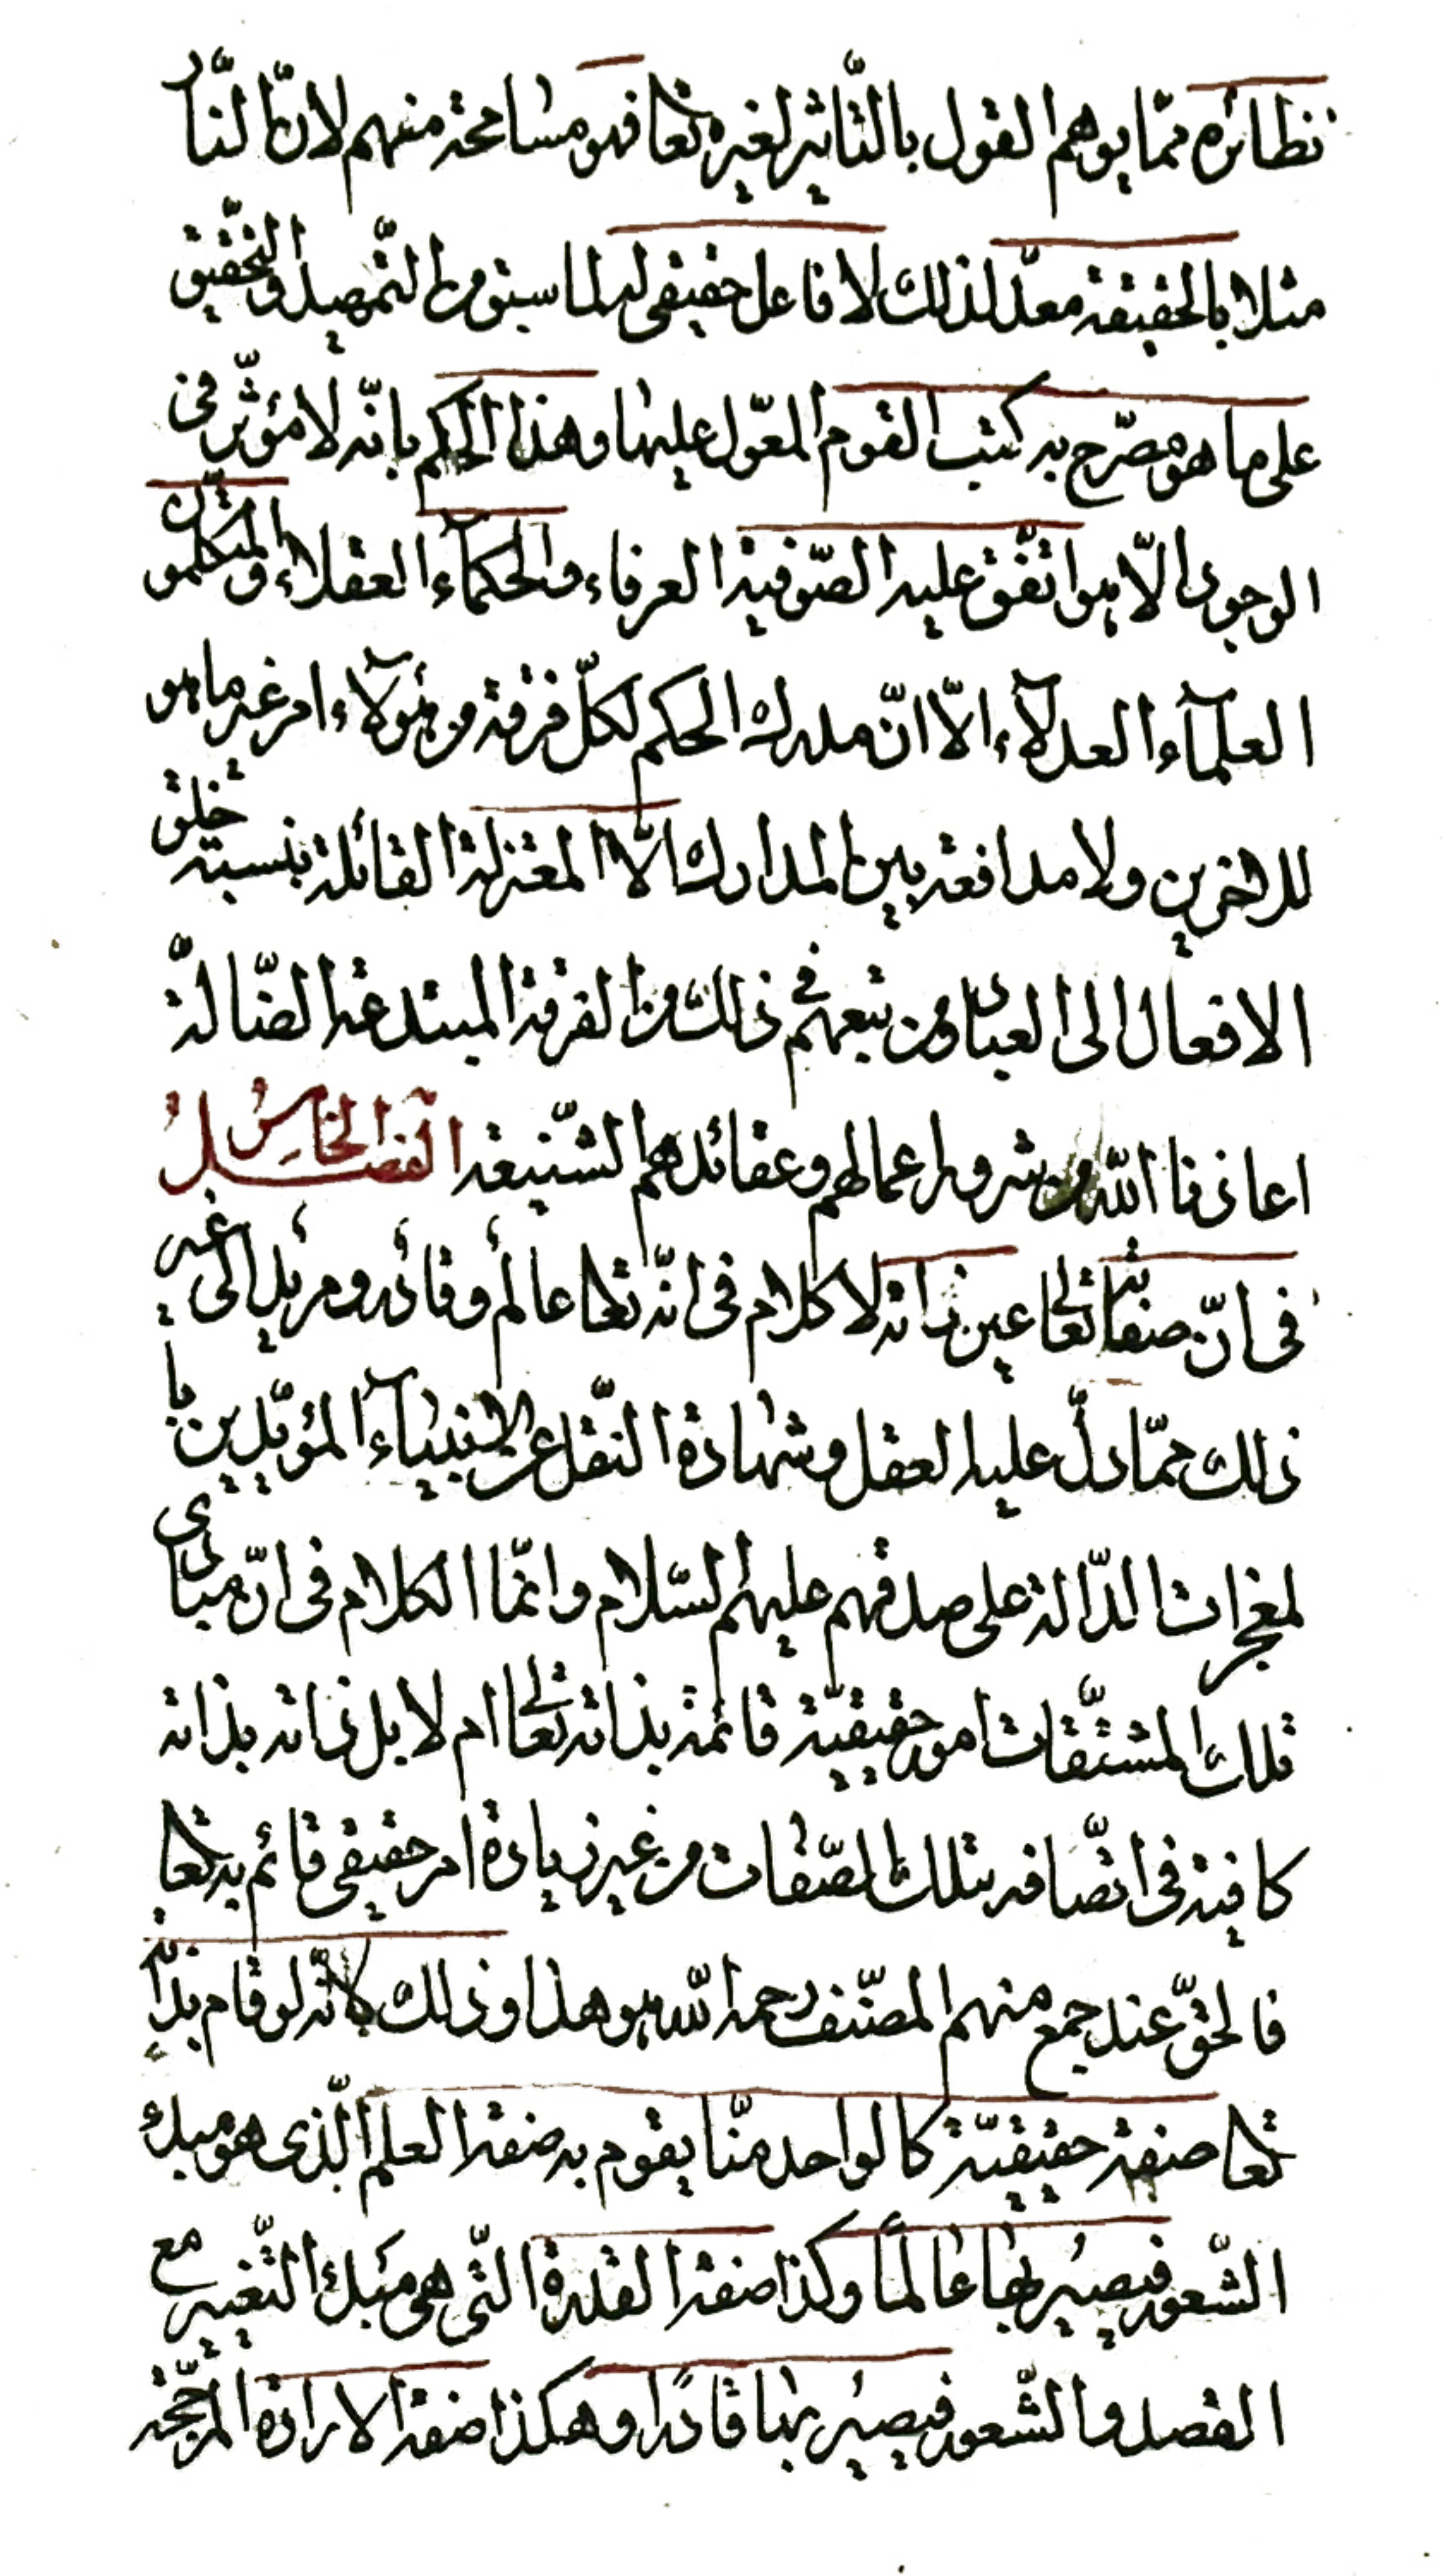 نظائره ممّا يوهم القول بالتّأثير لغيره تعا فهو مسامحة منهم لانّ النّار
مثلا بالحقيقة معدّ لذلك لا فاعل حقيقى له لما سبق من التّمهيد والتّحقيق
على ما هو مصرّح به كتب القوم المعوّل عليها وهذا الحكم بانّه لا مؤثّر فى
الوجود الّا هو اتّفق عليه الصّوفية العرفاء والحكمآء العقلاء والمتكلّمون
العلمآء العدلآء الّا انّ مدرك الحكم لكلّ فرقة من هؤلآء امر غير ما هو
للاخرين ولا مدافعة بين المدارك الّا المعتزلة القائلة بنسبة خلق
الافعال الى العباد ومن تبعهم فى ذلك من الفرقة المبتدعة الضّالّة
اعاذنا اللّه من شرور اعمالهم وعقائدهم الشّنيعة الفصل الخامس
فى انّ صفاته تعالى عين ذاته لا كلام فى انّه تعا عالم وقادر ومريد الى غير
ذلك ممّا دلّ عليه العقل وشهادة النّقل عن الانبيآء المؤيّدين با
لمعجزات الدّالة على صدقهم عليهم السّلام وانّما الكلام فى انّ مبادى
تلك المشتقّات امور حقيقيّة قائمة بذاته تعالى ام لا بل ذاته بذاته
كافية فى اتّصافه بتلك الصّفات من غير زيادة امر حقيقى قائم به تعا
فالحقّ عند جمع منهم المصنّف رحمه اللّه هو هذا وذلك لانّه لو قام بذاته
تعا صفة حقيقيّة كالواحد منّا يقوم به صفة العلم الّذى هو مبدء
الشّعور فيصير بها عالمًا وكذا صفة القدرة الّتى هى مبدء التّغيير مع
القصد والشّعور فيصير بها قادرًا وهكذا صفة الارادة المرجّحة